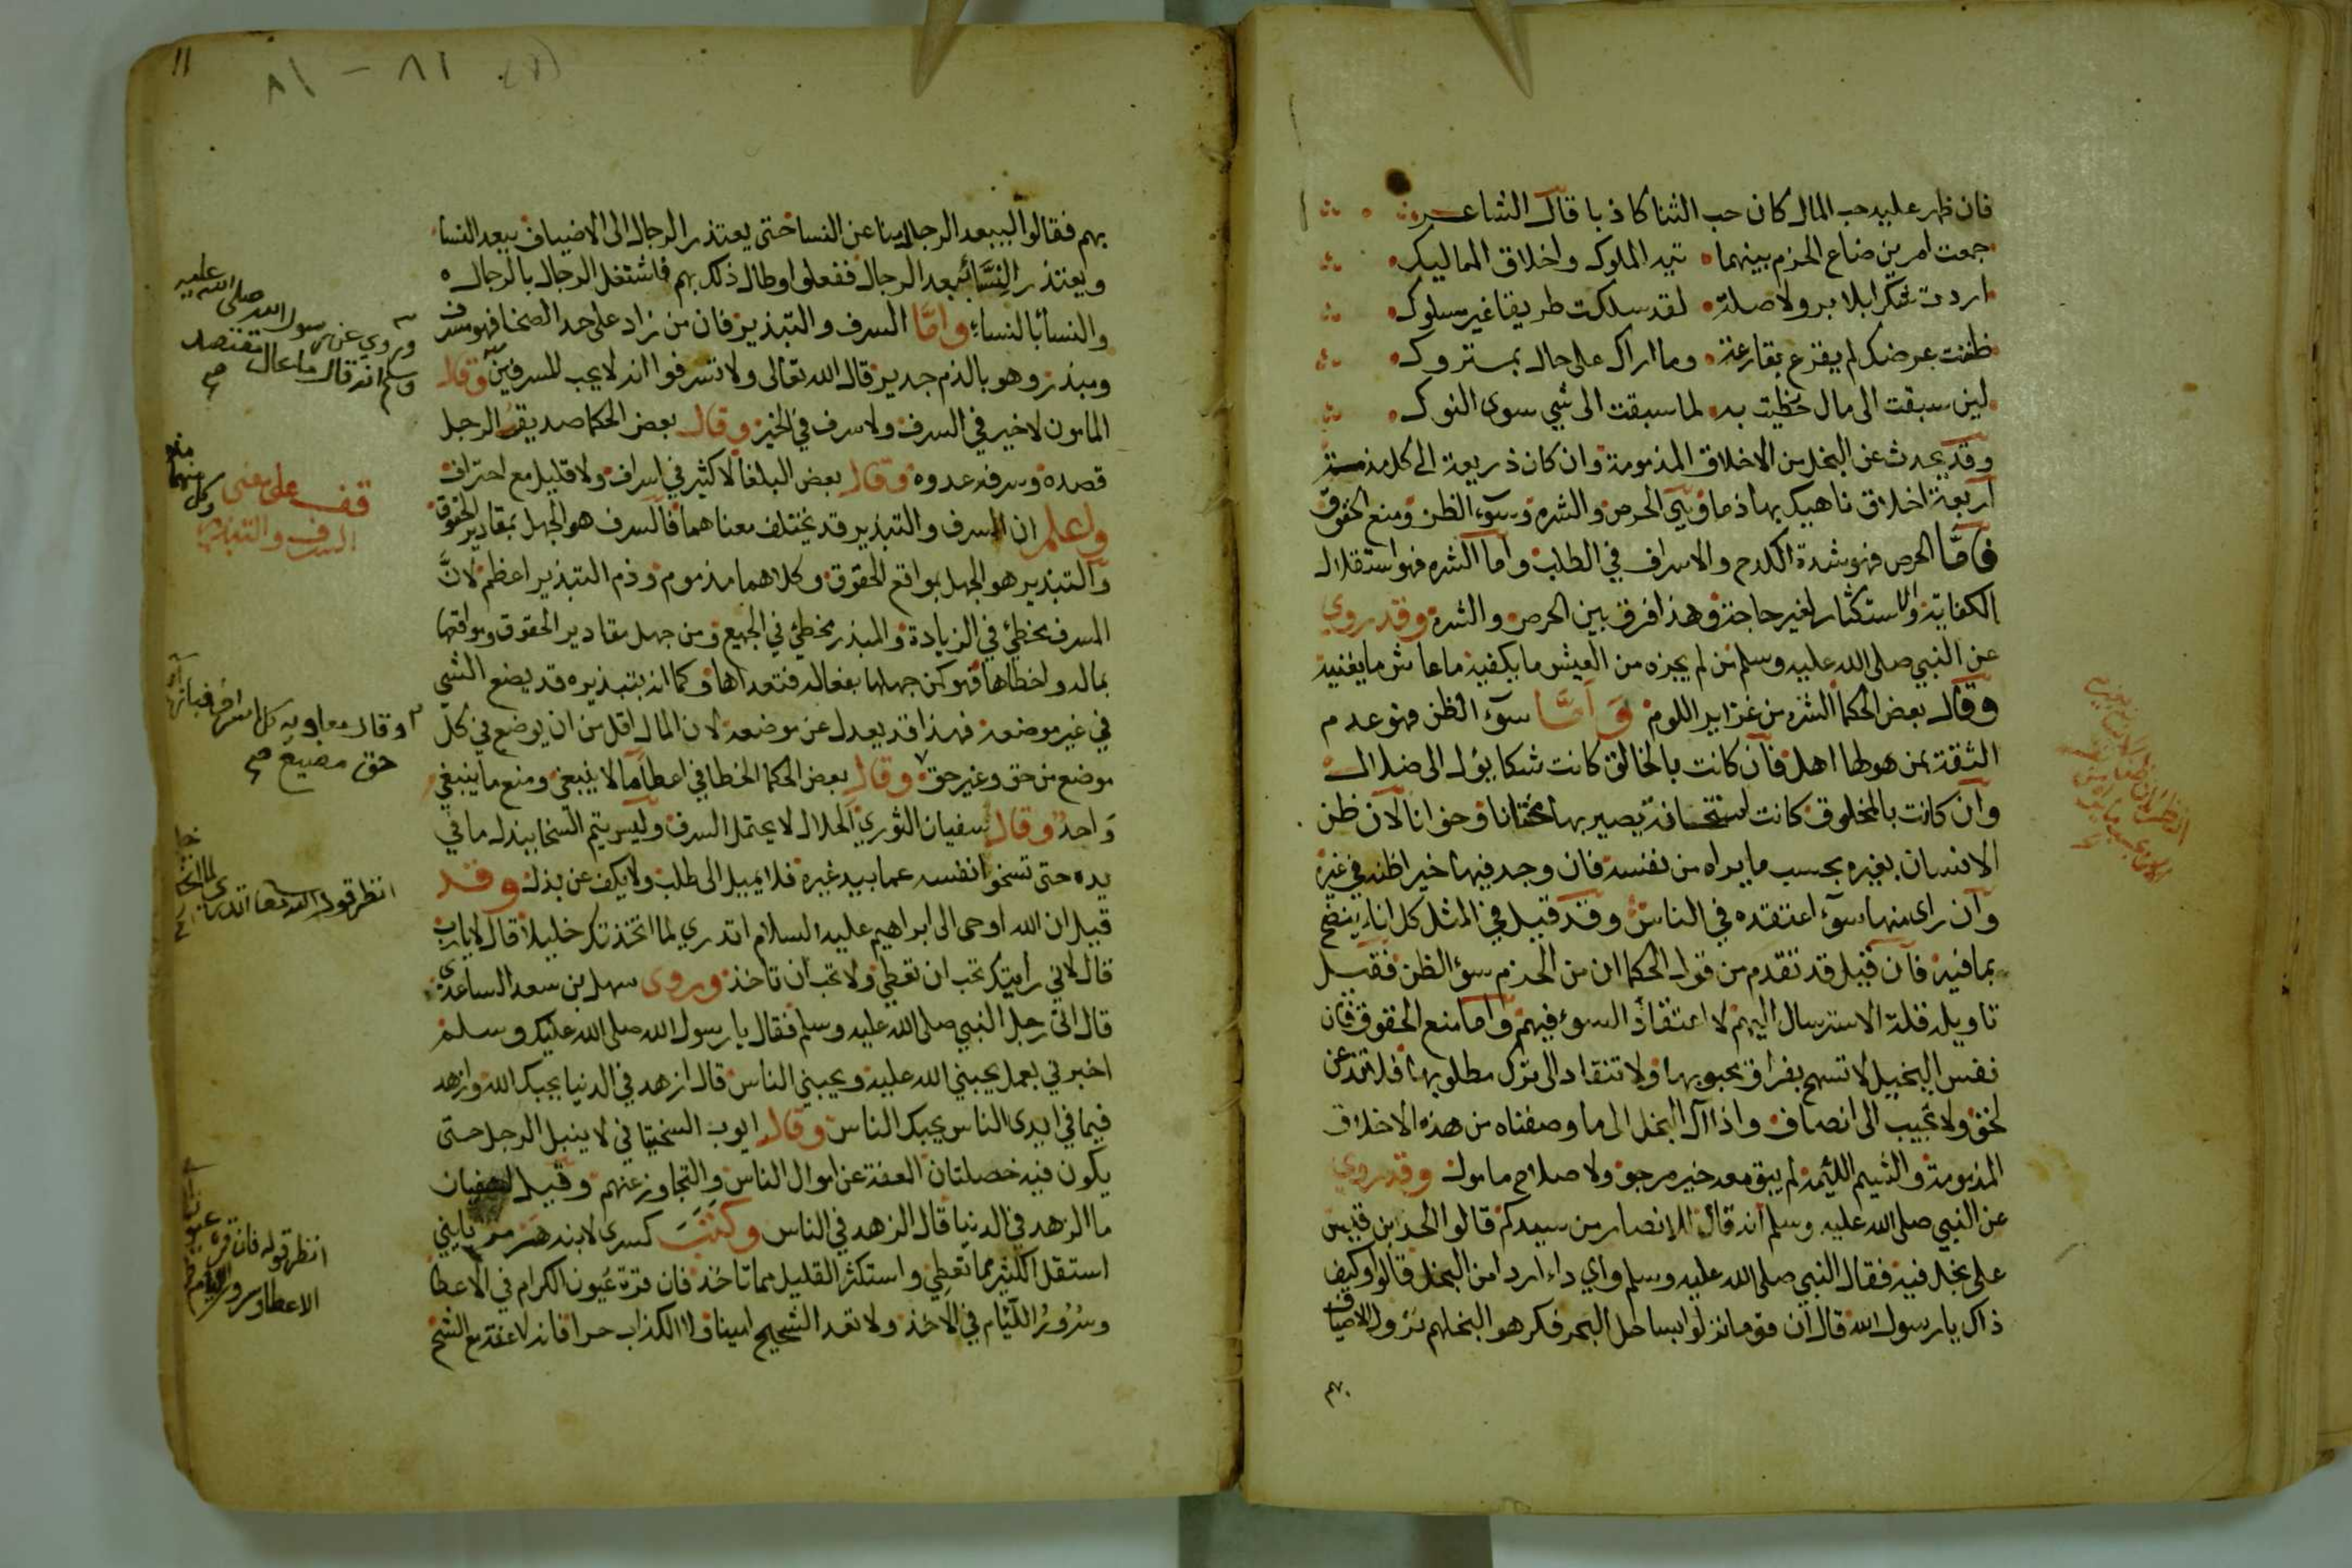 فان ظهر عليه حب المال كان حب الثنا كاذبا قال الشاعر
جمعت امرين ضاع الحزم بينهما تيه الملوك واخلاق المماليك
اردت شكرا بلا بر ولا صلة لقد سلكت طريقا غير مسلوك
ظننت عرضك لم يقرع بقارعة وما اراك على حال بمتروك
لين سبقت الى مال حظيت به لما سبقت الى شي سوى النوك
وقد يحدث عن البخل من الاخلاق المذمومة وان كان ذريعة الى كل مذمة
اربعة اخلاق ناهيك بها ذما وهي الحرص والشره وسوء الظن ومنع الحقوق
فاما الحرص فهو شدة الكدح والاسراف في الطلب واما الشره فهو استقلال
الكفاية والاستكثار لغير حاجة وهذا فرق بين الحرص والشره وقد روي
عن النبي صلى الله عليه وسلم من لم يجزه من العيش ما يكفيه ما عاش ما يغنيه
وقال بعض الحكما الشره من غرايز اللوم واما سوء الظن فهو عدم
الثقة بمن هو لها اهل فان كانت بالخالق كانت شكا يؤل الى ضلال
وان كانت بالمخلوق كانت استخانة يصير بها مختانا وخوانا لان ظن
الانسان بغيره بحسب ما يراه من نفسه فان وجد فيها خيرا ظنه في غيره
وان راى منها سوء اعتقده في الناس وقد قيل في المثل كل اناء ينضح
بما فيه فان قيل قد تقدم من قول الحكما ان من الحزم سوء الظن فقيل
تاويله قلة الاسترسال اليهم لا اعتقاد السوء فيهم واما منع الحقوق فان
نفس البخيل لا تسمح بفراق محبوبها ولا تنقاد الى ترك مطلوبها فلا تذعن
لحق ولا تجيب الى انصاف واذا آل البخل الى ما وصفناه من هذه الاخلاق
المذمومة والشيم اللئيمة لم يبق معه خير مرجو ولا صلاح مامول وقد روي
عن النبي صلى الله عليه وسلم انه قال للانصار من سيدكم قالوا الحر بن قيس
على بخل فيه فقال النبي صلى الله عليه وسلم واي داء اردا من البخل قالوا وكيف
ذاك يا رسول الله قال ان قوما نزلوا بساحل البحر فكرهوا لبخلهم نزول الاضياف
بهم
١١
٨١ - ٨١
بهم فقالوا ليبعد الرجال منا عن النسا حتى يعتذر الرجال الى الاضياف ببعد النسا
ويعتذر النسا ببعد الرجال ففعلوا وطال ذلك بهم فاشتغل الرجال بالرجال
والنسا بالنساء واما السرف والتبذير فان من زاد على حد السخا فهو مسرف
ومبذر وهو بالذم جدير قال الله تعالى ولا تسرفوا انه لا يحب المسرفين وقال
المامون لا خير في السرف ولا سرف في الخير وقال بعض الحكما صديق الرجل
قصده وسرفه عدوه وقال بعض البلغا لا كثير في اسراف ولا قليل مع احتراف
واعلم ان السرف والتبذير قد يختلف معناهما فالسرف هو الجهل بمقادير الحقوق
والتبذير هو الجهل بمواقع الحقوق وكلاهما مذموم وذم التبذير اعظم لان
المسرف يخطئ في الزيادة والمبذر يخطئ في الجميع ومن جهل مقادير الحقوق ومواقعها
بماله واخطاها فهو كمن جهلها بفعاله فتعداها وكما انه بتبذيره قد يضع الشي
في غير موضعه فهذا قد يعدل عن موضعه لان المال اقل من ان يوضع في كل
موضع من حق وغير حق وقال بعض الحكما الخطا في اعطا ما لا ينبغي ومنع ما ينبغي
واحد وقال سفيان الثوري الحلال لا يحتمل السرف وليس يتم السخا ببذل ما في
يده حتى تسخو انفسه عما بيد غيره فلا يميل الى طلب ولا يكف عن بذل وقد
قيل ان الله اوحى الى ابراهيم عليه السلام اتدري لما اتخذتك خليلا قال لا يا رب
قال لاني رايتك تحب ان تعطي ولا تحب ان تاخذ وروى سهل بن سعد الساعدي
قال اتى رجل النبي صلى الله عليه وسلم فقال يا رسول الله صلى الله عليك وسلم
اخبرني بعمل يحبني الله عليه ويحبني الناس قال ازهد في الدنيا يحبك الله وازهد
فيما في ايدى الناس يحبك الناس وقال ايوب السختياني لا ينبل الرجل حتى
يكون فيه خصلتان العفة عن اموال الناس والتجاوز عنهم وقيل لسفيان
ما الزهد في الدنيا قال الزهد في الناس وكتب كسرى لابنه هرمز يا بني
استقل الكثير مما تعطي واستكثر القليل مما تاخذ فان قرة عيون الكرام في الاعطا
وسرور اللئام في الاخذ ولا تعد الشحيح امينا ولا الكذاب حرا فانه لا عفة مع الشح
وروي عن رسول الله صلى الله عليه
وسلم انه قال ما عال مقتصد
صح
قف على معنى
السرف والتبذير
وقال معاويه كل اسراف فبازايه
حق مضيع صح
انظر قول الله تعالى اتدري لما اتخذتك
انظر قوله فان قرة عيون
الاعطا وسرور